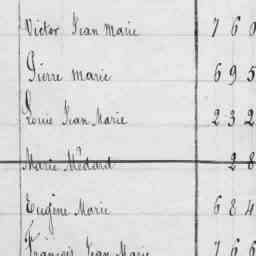 Victor Jean Marie 7 6 0
Pierre Marie 6 9 5
Louis Jean Marie 2 3 2
Marie Médard 2 8
Eugène Marie 6 8 4
François Jean Marie 7 6 6